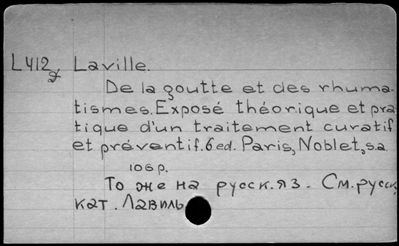 L412 Laville.
De la goutte et des rhuma-
tismes. Exposé théorique et pra
tique d'un traitement curatif
et préventif. 6 ed. Paris, Noblet, sa
106 p.
То же на русск. яз. См. русск.
кат. Лавиль